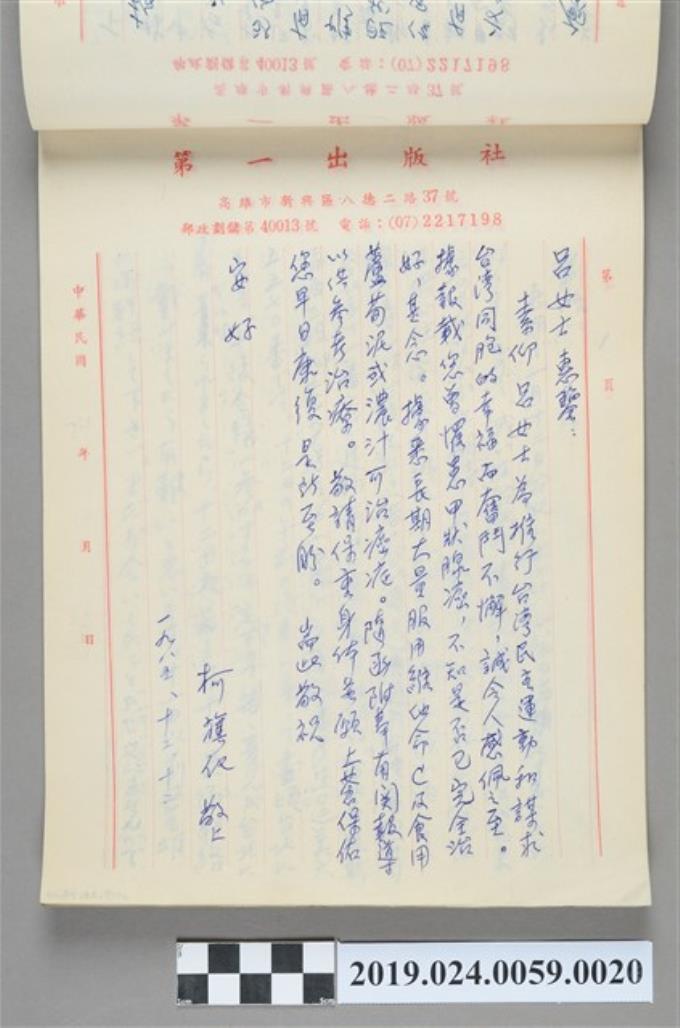 第一出版社
高雄市新興區八德二路37號
郵政劃儲第40013號 電話:(07)2217198
第 1 頁
呂女士惠鑒:
素仰 呂女士為推行台湾民主運動和謀求
台湾同胞的幸福而奮鬥不懈,誠令人感佩之至。
據報載您曾懷患甲狀腺癌,不知是否已完全治
好,甚念。據悉長期大量服用維他命C及食用
蘆筍泥或濃汁可治癌症。隨函附奉有関報導
以供參考治療。敬請保重身体並願上蒼保佑
您早日康復是所至盼。 耑此敬祝
安好
柯旗化 敬上
一九八五、十二、十二
中華民國 年 月 日
2019.024.0059.0020